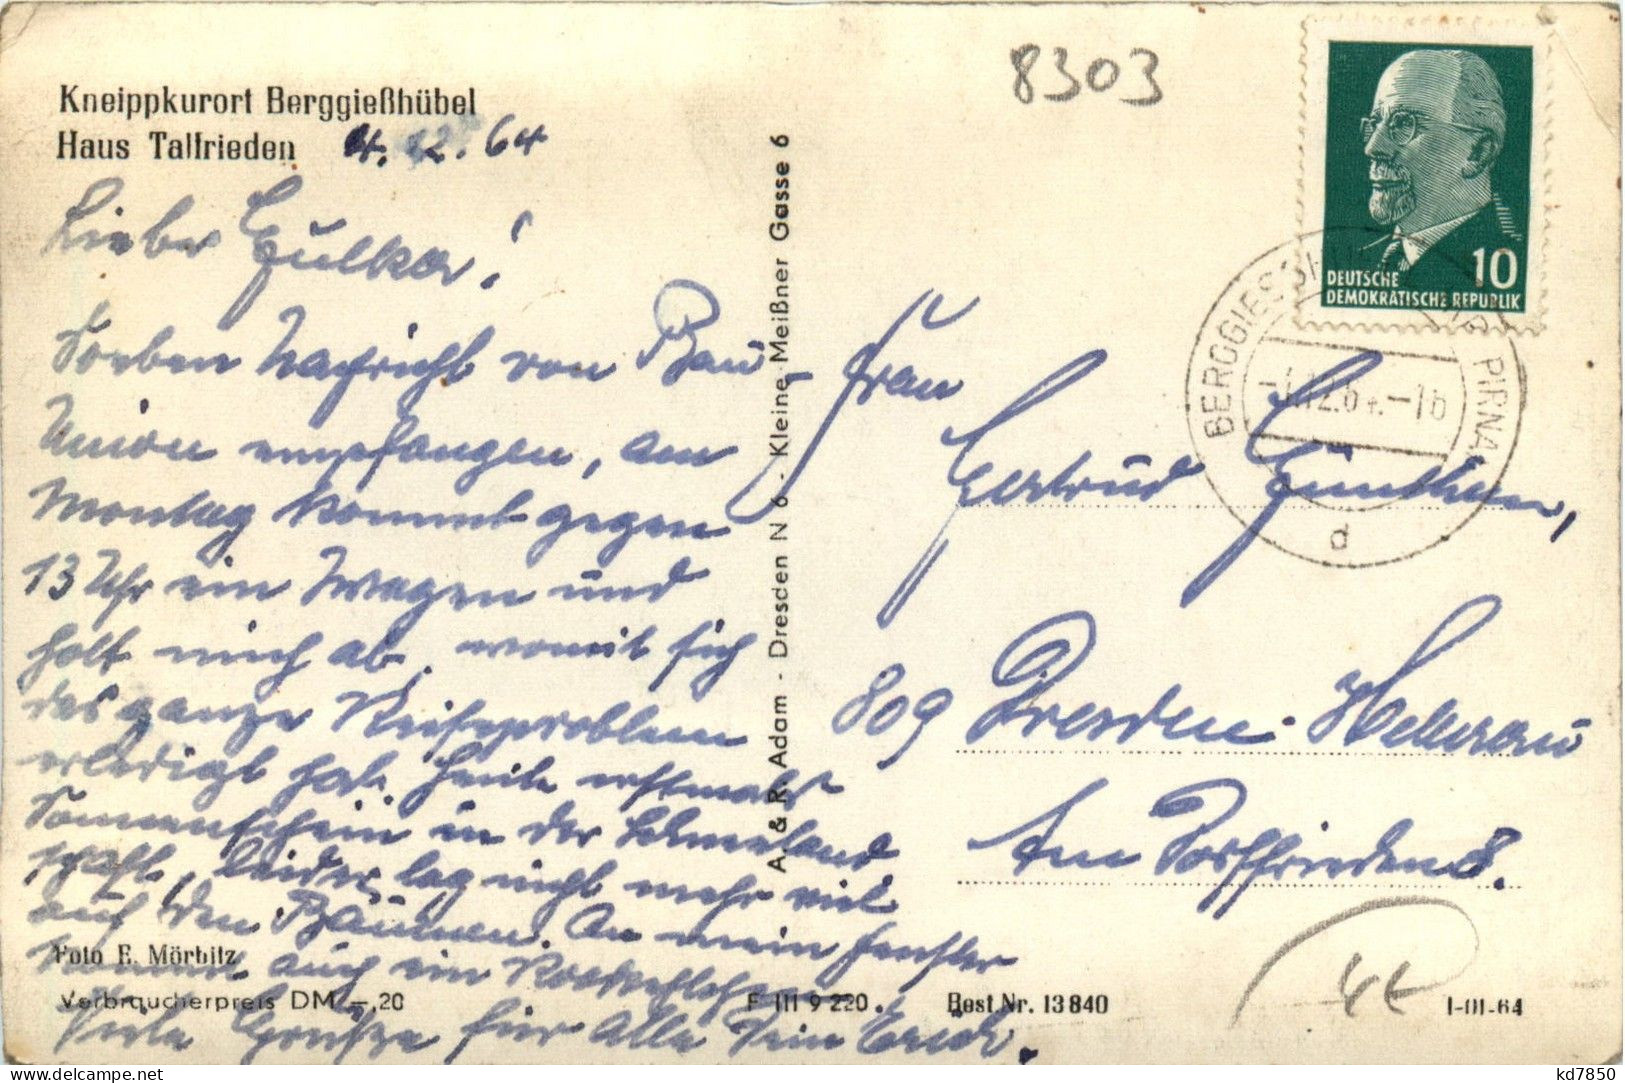 Kneippkurort Berggießhübel
Haus Talfrieden 4.12.64
8303
DEUTSCHE
DEMOKRATISCHE REPUBLIK
10
BERGGIESSH PIRNA
12.64.-16
d
Lieber
Soeben Nachricht von Bau
Union empfangen, am
Montag kommt gegen
13 Uhr ein Wagen und
holt mich ab, womit sich
das ganze Reiseproblem
erledigt hat. Heute erstmals
Sonnenschein in der
schaft, leider lag nicht mehr viel
auf den Bäumen. An mein Fenster
kommt auch ein Rotkehlchen.
Viele Grüße für Alle Dein Erich.
A. & R. Adam - Dresden N 6 - Kleine Meißner Gasse 6
Frau
Gertrud Günther,
809 Dresden-Hellerau
Am Dorffrieden 8.
Foto E. Mörbitz
Verbraucherpreis DM -,20
F III 9 220. Best.Nr. 13840 I-01-64
kd7850